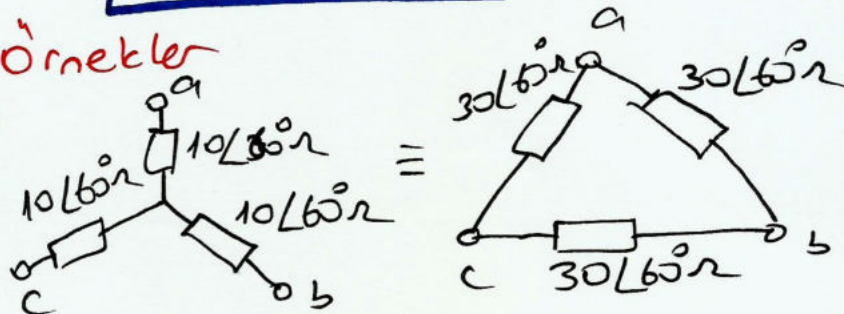 Örnekler
a
10∠60°Ω
10∠60°Ω
10∠60°Ω
c
b
≡
a
30∠60°Ω
30∠60°Ω
c
30∠60°Ω
b